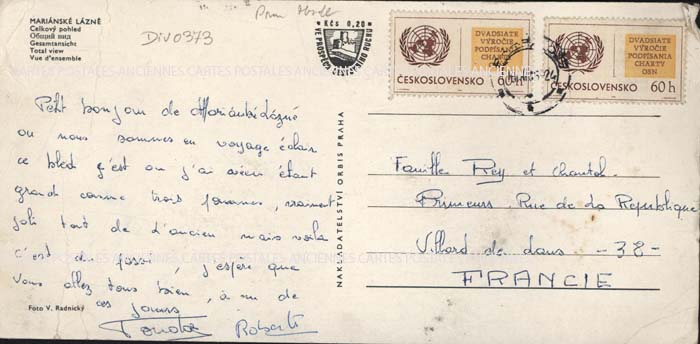 MARIÁNSKÉ LÁZNĚ
Celkový pohled
Общий вид
Gesamtansicht
Total view
Vue d'ensemble
Div0373
Kčs 0,20
VE PROSPĚCH CESTOVNÍHO RUCHU
DVADSIATE
VÝROČIE
PODPÍSANIA
CHARTY
OSN
ČESKOSLOVENSKO
60 h
DVADSIATE
VÝROČIE
PODPÍSANIA
CHARTY
OSN
ČESKOSLOVENSKO
60 h
CARTES POSTALES ANCIENNES
Petit bonjour de
ou nous sommes en voyage éclair
ce bled c'est ou j'ai vécu étant
grand comme trois pommes, vraiment
joli tout de d'ancien mais voila
c'est du passé, j'espère que
vous allez tous bien, a un de
ces jours
Roberte
Foto V. Radnický
NAKLADATELSTVÍ ORBIS PRAHA
Famille Rey et Chantal
Primeurs Rue de la République
Villard de Lans - 38 -
FRANCIE